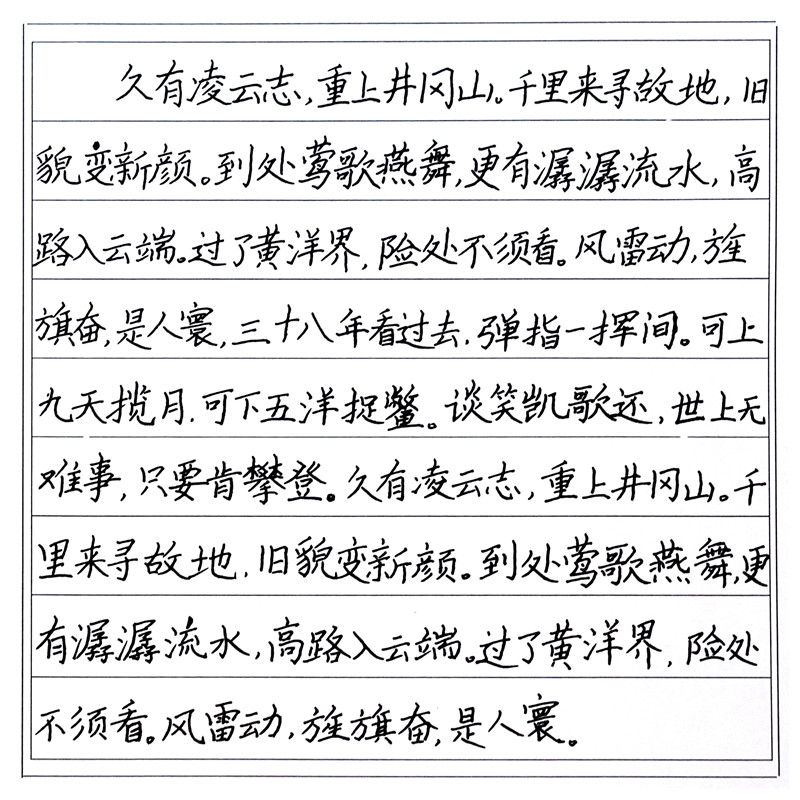 久有凌云志,重上井冈山。千里来寻故地,旧
貌变新颜。到处莺歌燕舞,更有潺潺流水,高
路入云端。过了黄洋界,险处不须看。风雷动,旌
旗奋,是人寰,三十八年看过去,弹指一挥间。可上
九天揽月,可下五洋捉鳖。谈笑凯歌还,世上无
难事,只要肯攀登。久有凌云志,重上井冈山。千
里来寻故地,旧貌变新颜。到处莺歌燕舞,更
有潺潺流水,高路入云端。过了黄洋界,险处
不须看。风雷动,旌旗奋,是人寰。